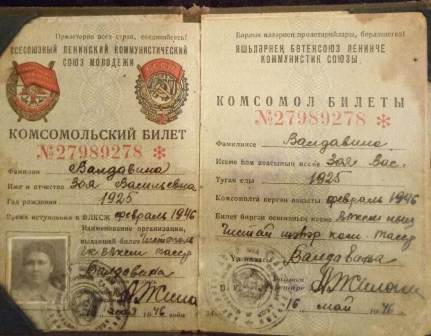 Пролетарии всех стран, соединяйтесь!
ВСЕСОЮЗНЫЙ ЛЕНИНСКИЙ КОММУНИСТИЧЕСКИЙ
СОЮЗ МОЛОДЕЖИ
КОМСОМОЛЬСКИЙ БИЛЕТ
№27989278 *
Фамилия Валдавина
Имя и отчество Зоя Васильевна
Год рождения 1925
Время вступления в ВЛКСМ февраль 1946
Наименование организации,
выдавшей билет
ГК ВЛКСМ ТАССР
Валдавина
16 мая 1946
Барлык илләрнең пролетарийлары, берләшегез!
ЯШЬЛӘРНЕҢ БӨТЕНСОЮЗ ЛЕНИНЧЕ
КОММУНИСТИК СОЮЗЫ
КОМСОМОЛ БИЛЕТЫ
№27989278 *
Фамилиясе Валдавина
Исеме һәм атасының исеме Зоя Вас.
Туган елы 1925
Комсомолга кергән вакыты февраль 1946
Билет биргән оешманың исеме
ком. ТАССР
Валдавина
16 май 1946